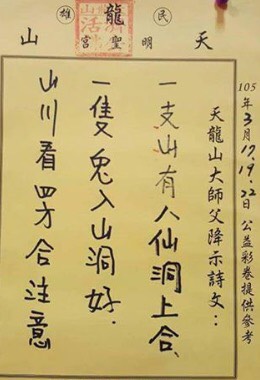 民雄
天龍山
明聖宮
105年3月17.19.22日 公益彩卷提供參考
天龍山大師父降示詩文：
一支山有人仙洞上合、
一隻兔入山洞好.
山川看四方合注意